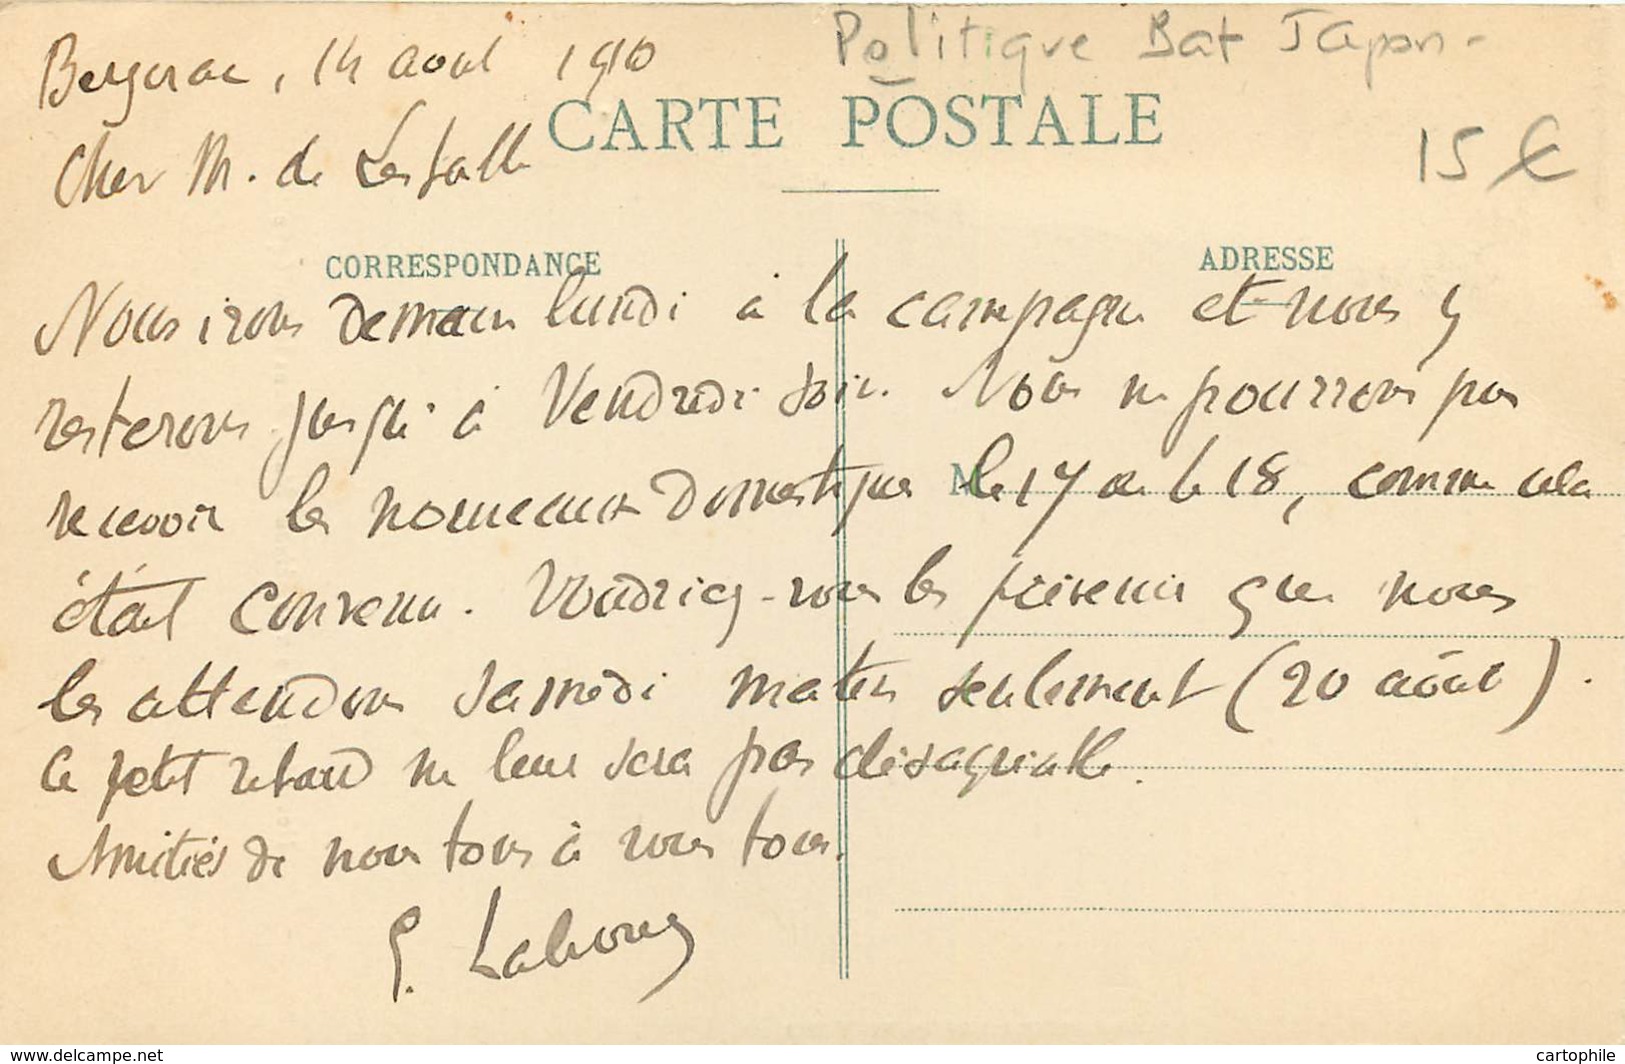 Politique Bat Japon -
Bergerac, 14 aout 1910
CARTE POSTALE
15 €
Cher M. de Lessalle
CORRESPONDANCE
ADRESSE
Nous irons demain lundi à la campagne et nous y
resterons jusqu'à Vendredi soir. Nous ne pourrons pas
recevoir les nouveaux domestiques le 17 ou le 18, comme cela
M
était convenu. Voudriez-vous les prévenir que nous
les attendons samedi matin seulement (20 août).
Ce petit retard ne leur sera pas désagréable.
Amitiés de nous tous à vous tous.
G.
www.delcampe.net
cartophile